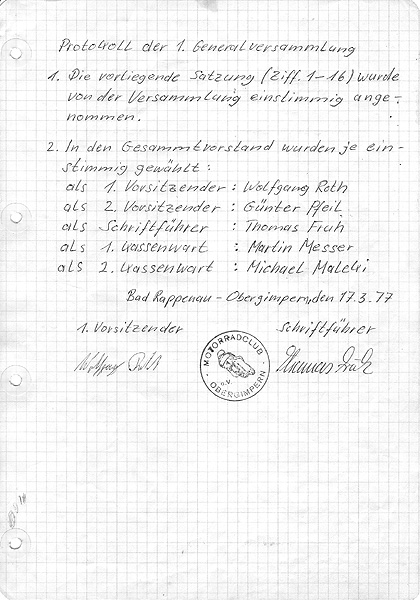 Protokoll der 1. Generalversammlung
1. Die vorliegende Satzung (Ziff. 1-16) wurde
von der Versammlung einstimmig ange-
nommen.
2. In den Gesammtvorstand wurden je ein-
stimmig gewählt:
als 1. Vorsitzender : Wolfgang Roth
als 2. Vorsitzender : Günter Pfeil
als Schriftführer : Thomas Früh
als 1. Kassenwart : Martin Messer
als 2. Kassenwart : Michael Malecki
Bad Rappenau - Obergimpern, den 17.3.77
1. Vorsitzender Schriftführer
Wolfgang Roth Thomas Früh
MOTORRADCLUB
e.V.
OBERGIMPERN